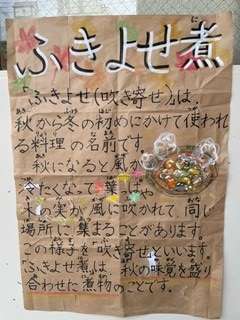 ふきよせ煮
「ふきよせ(吹き寄せ)」は、
秋から冬の初めにかけて使われ
る料理の名前です。
秋になると風が
冷たくなって、葉っぱや
木の実が風に吹かれて同じ
場所に集まることがあります。
この様子を「吹き寄せ」といいます。
「ふきよせ煮」は、秋の味覚を盛り
合わせた煮物のことです。